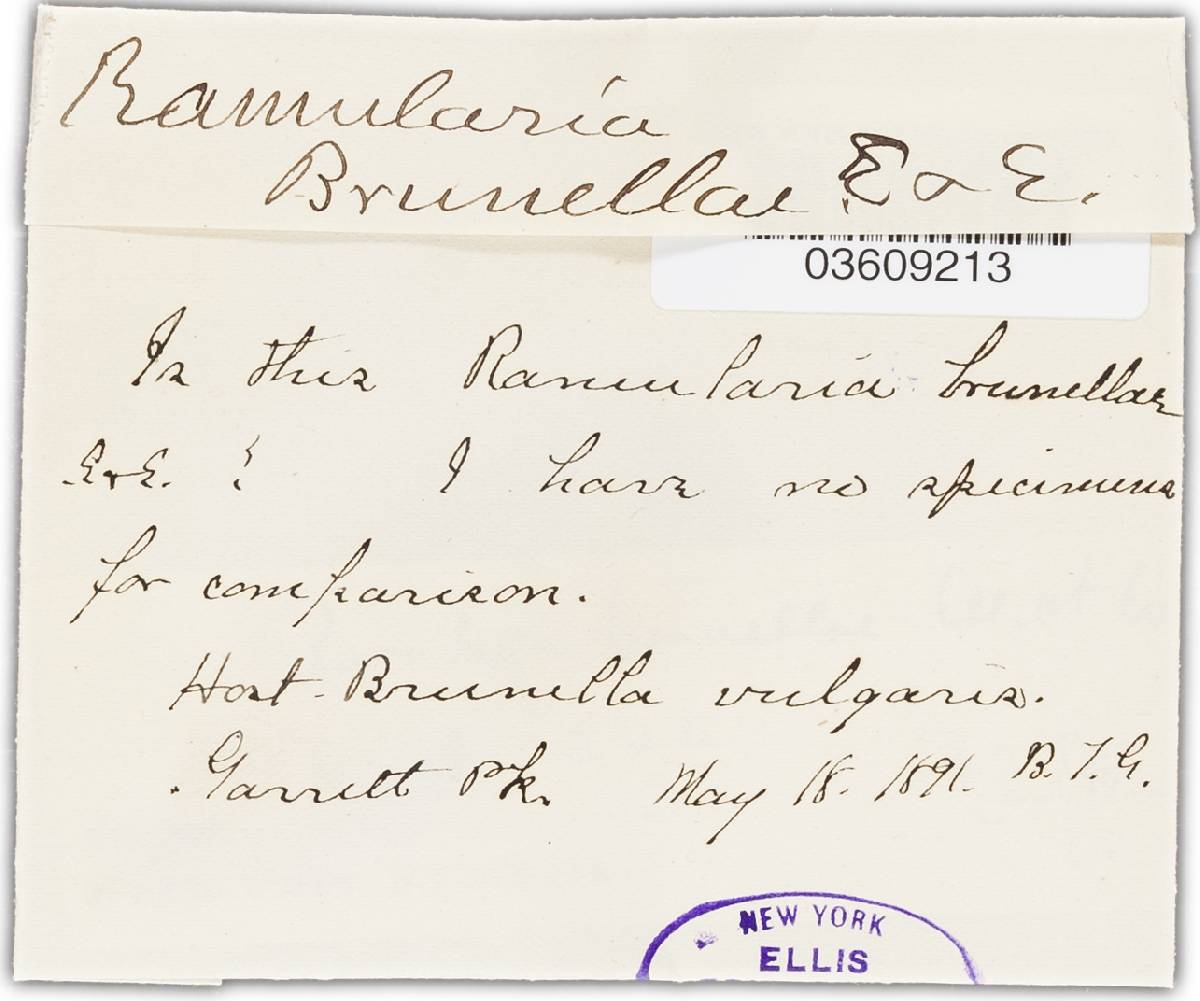 Ramularia
Brunellae E & E.
03609213
Is this Ramularia brunellae
E & E. ? I have no specimens
for comparison.
Host - Brunella vulgaris.
Garrett Pk. May 18. 1891. B. T. G.
NEW YORK
ELLIS